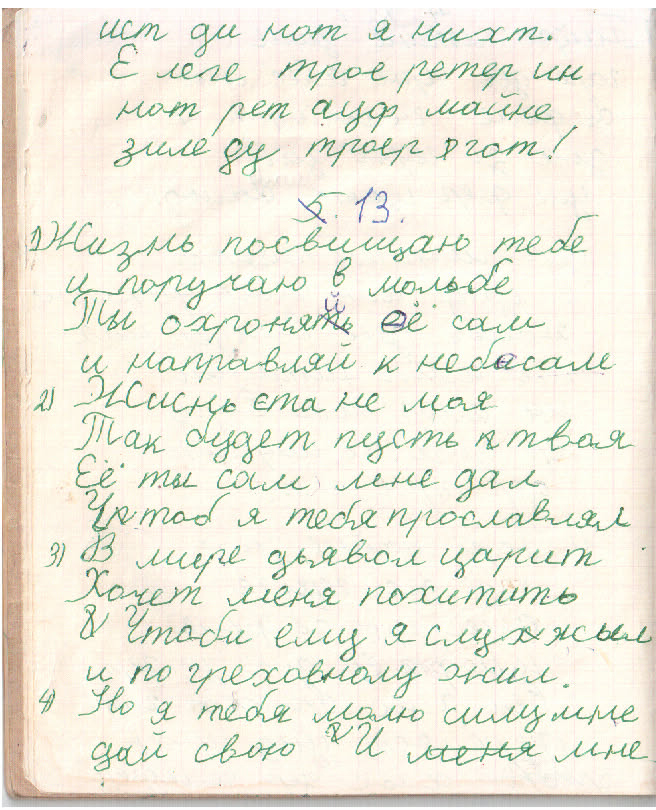 ист ди нот я нихт.
Е леге трое ретер ин
нот рет ауф майне
зиле ду троер гот!
Б. 13.
1) Жизнь посвищаю тебе
и поручаю в мольбе
Ты охроняй её сам
и направляй к небесам
2) Жиснь ета не моя
Так будет пусть твоя
Её ты сам мне дал
Чтоб я тебя прославлял
3) В мире дьявол царит
Хочет меня похитить
Чтоби ему я служыл
и по греховному жил.
4) Но я тебя молю силу мне
дай свою И меня мне